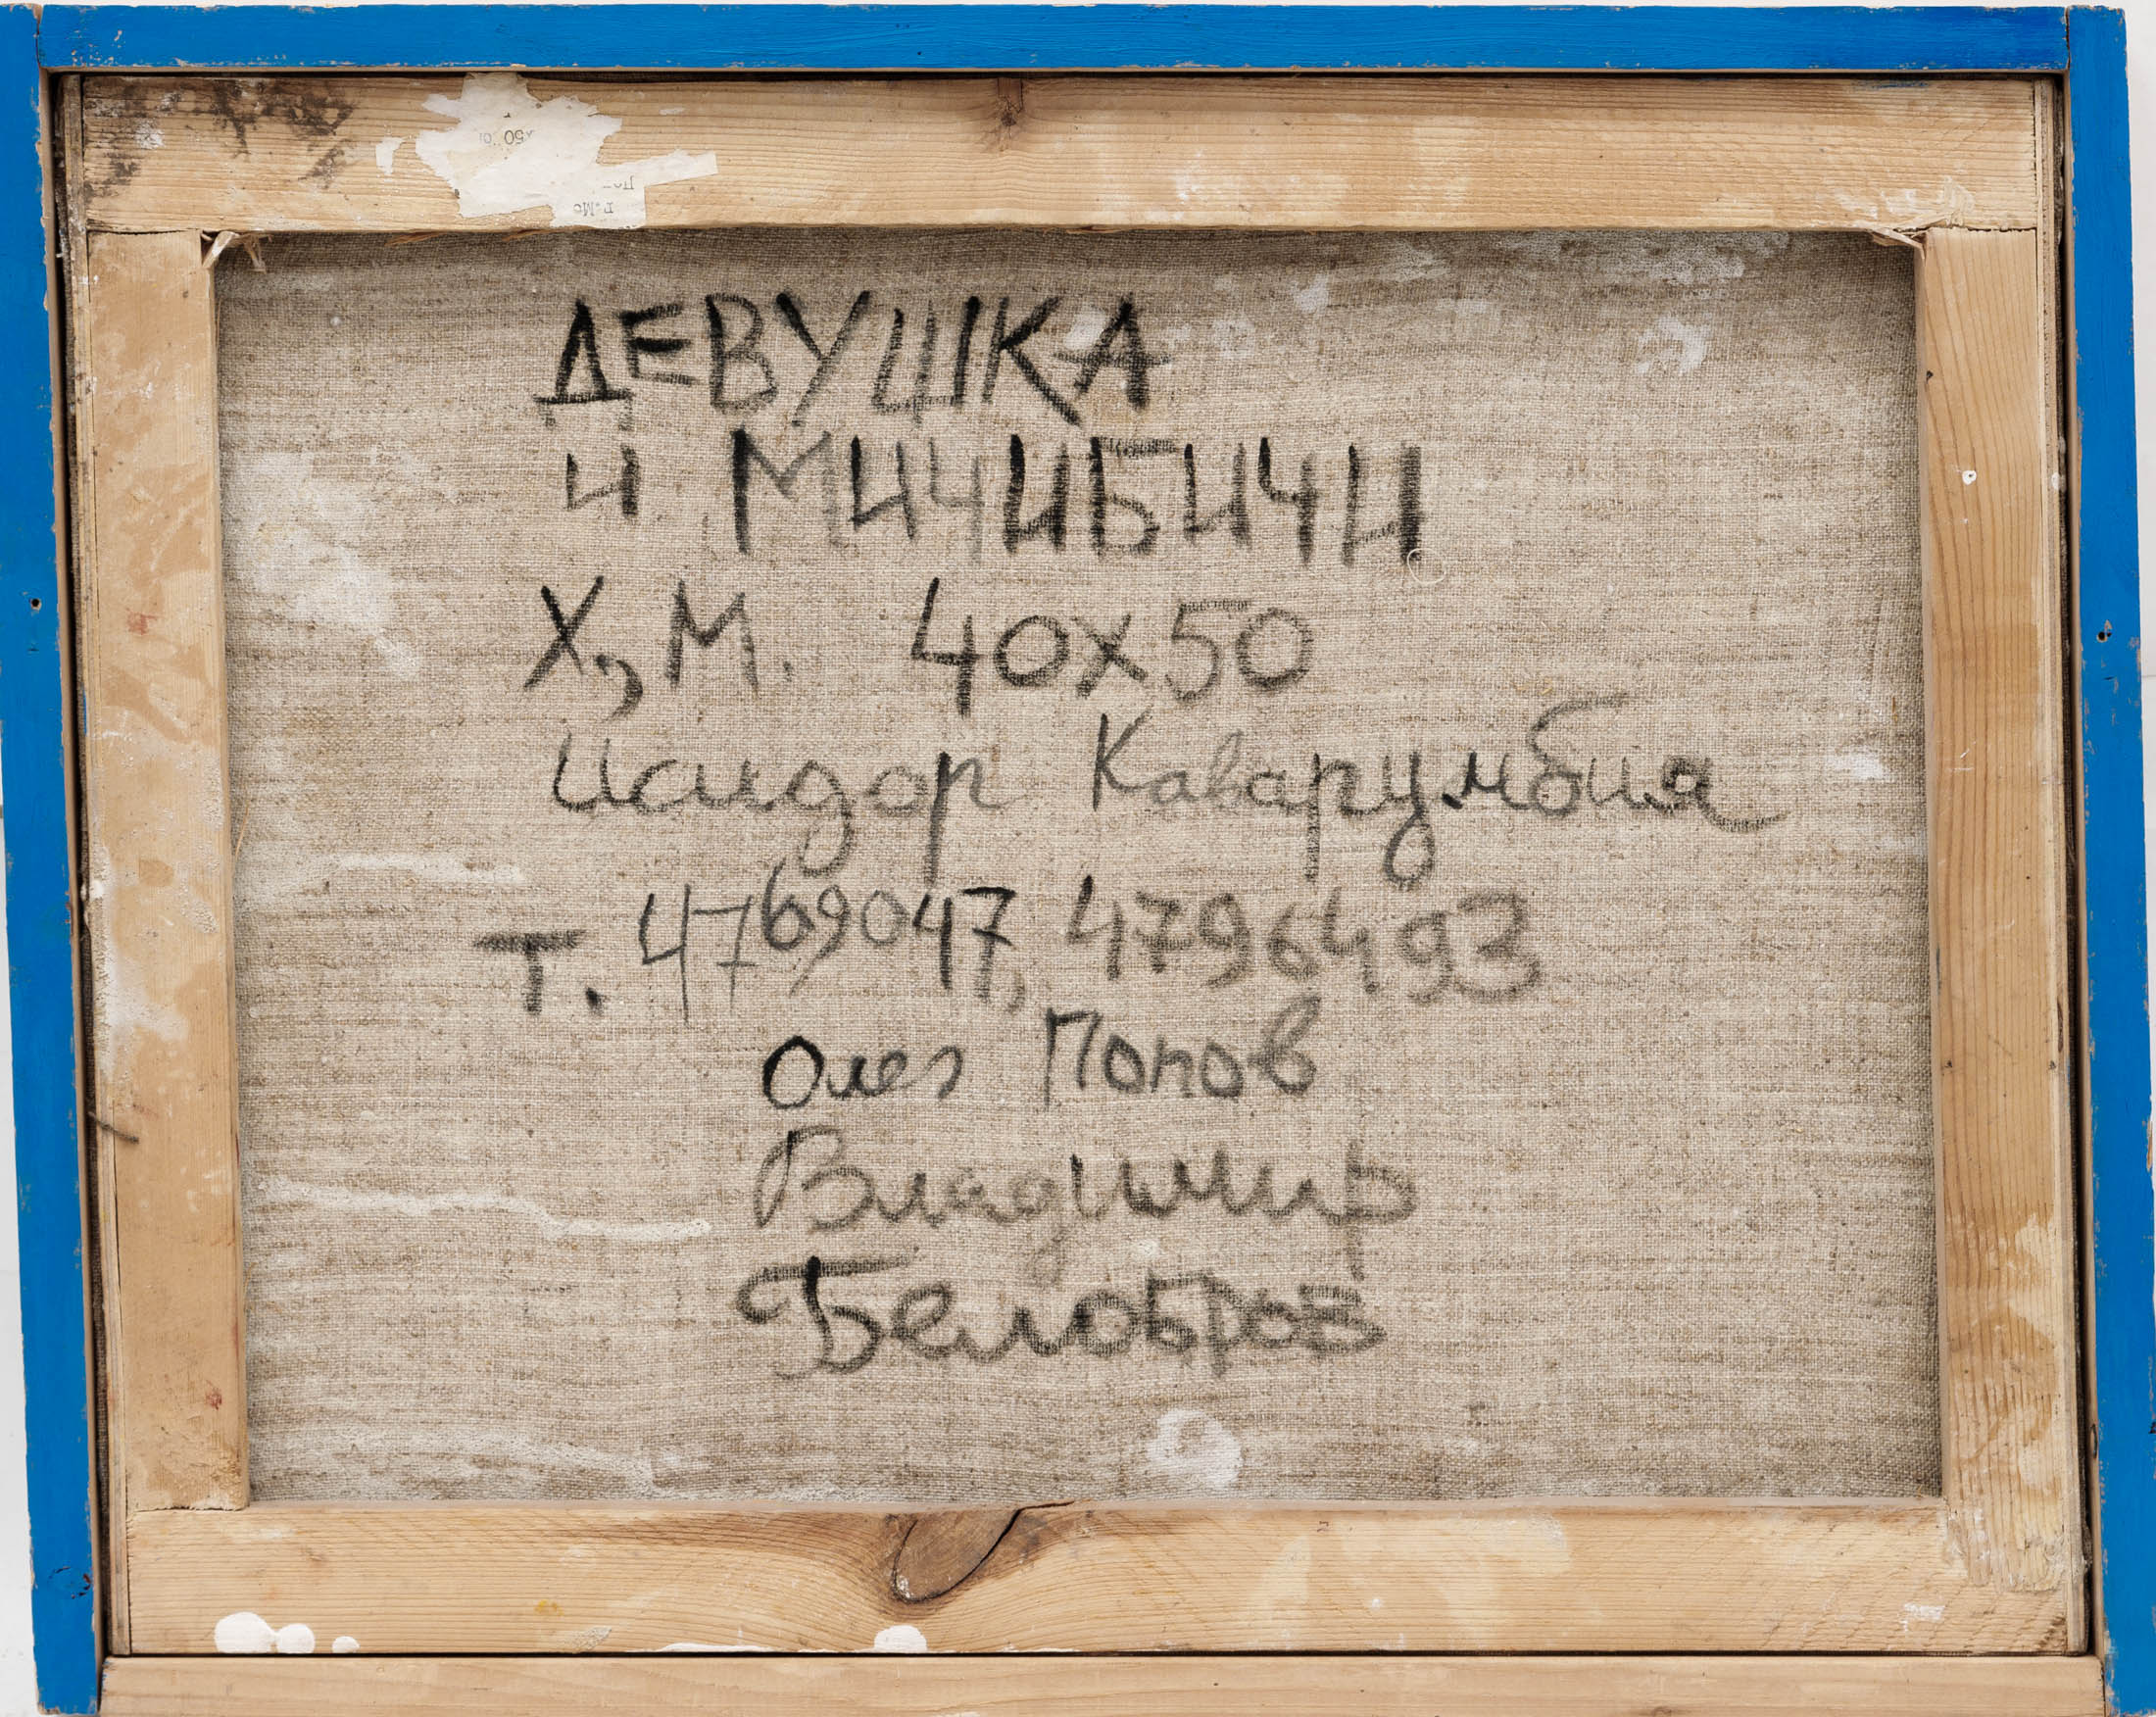 ДЕВУШКА
и МИЧИБИЧИ
Х,М. 40х50
Исидор Каварумбия
Т. 4769047, 4796493
Олег Попов
Владимир
Белобров